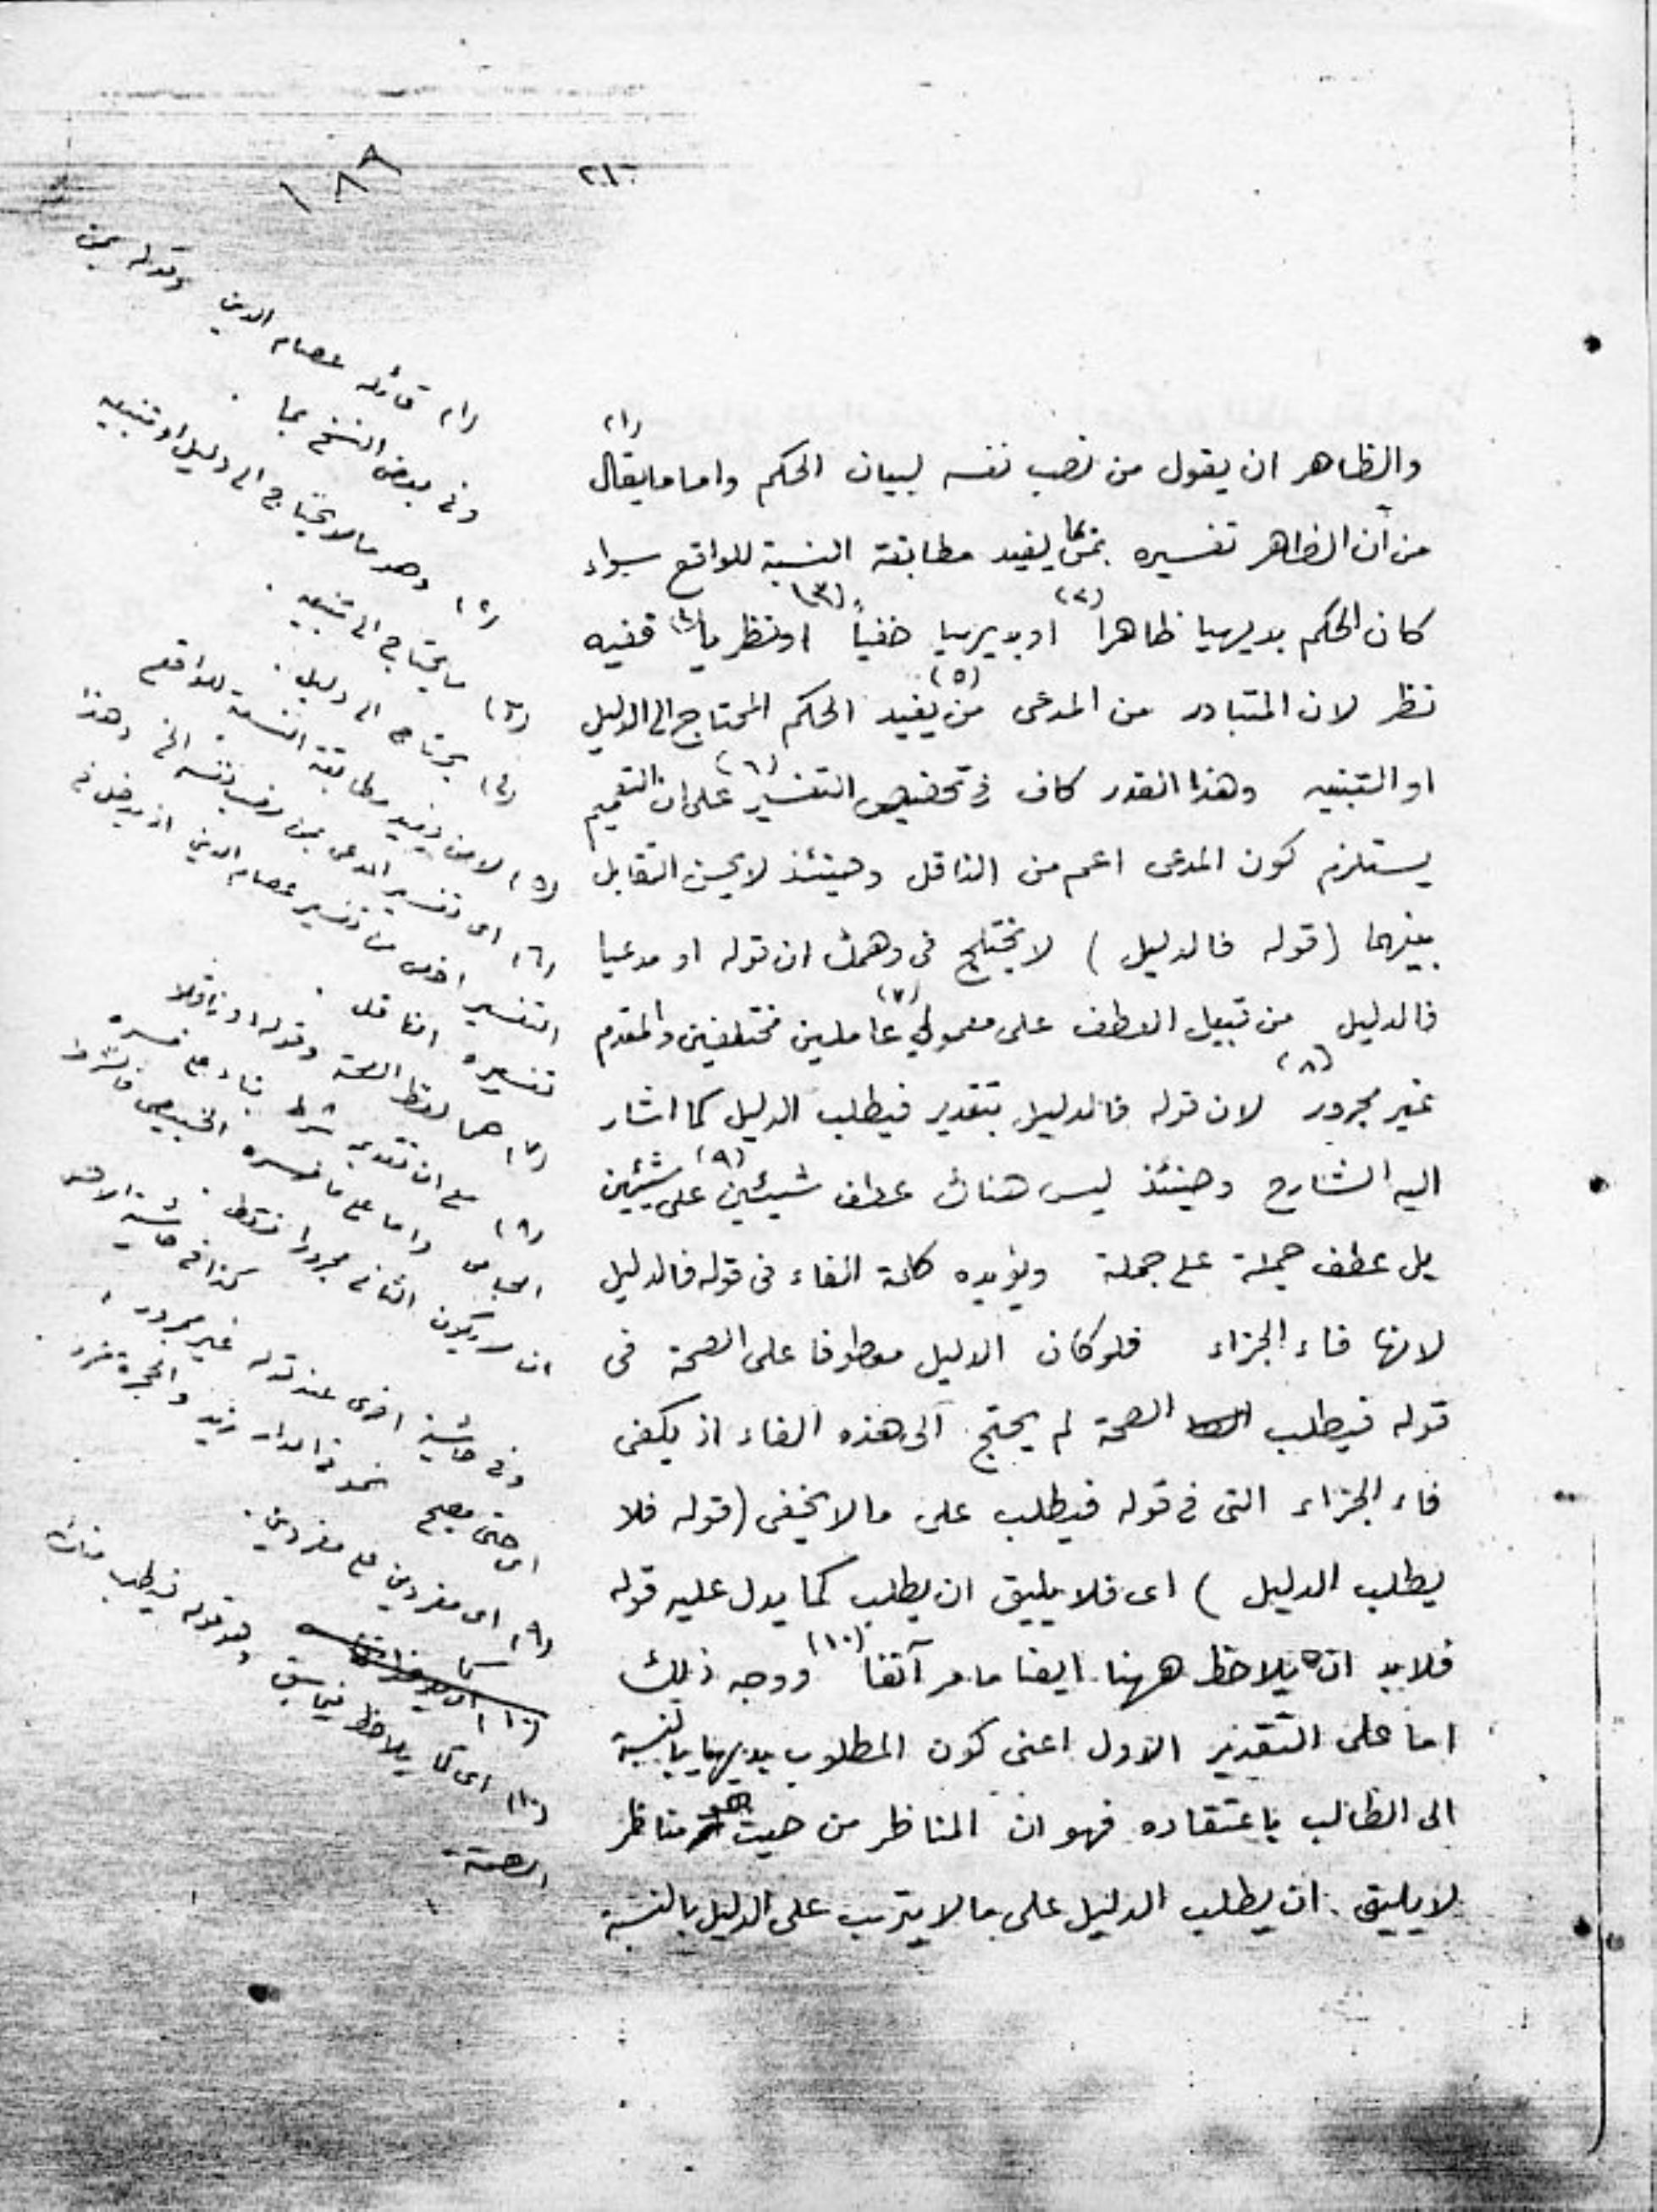 ١٨٩
٢١٠
(١)
والظاهر ان يقول من نصب نفسه لبيان الحكم واما ما يقال
من أن الظاهر تفسيره بمن يفيد مطابقة النسبة للواقع سواء
كان الحكم بديهيا ظاهرا (٢) او بديهيا خفياً (٣) او نظرياً (٤) ففيه
نظر لان المتبادر من المدعى من يفيد (٥) الحكم المحتاج الى الدليل
او التنبيه وهذا القدر كاف فى تخصيص التفسير (٦) على ان التعميم
يستلزم كون المدعى اعم من الناقل وحينئذ لا يحسن التقابل
بينهما (قوله فالدليل) لا يختلج فى وهمك ان قوله او مدعيا
فالدليل من قبيل العطف على معمولي (٧) عاملين مختلفين والمقدم
غير مجرور (٨) لان قوله فالدليل بتقدير فيطلب الدليل كما اشار
اليه الشارح وحينئذ ليس هناك عطف شيئين (٩) على شيئين
بل عطف جملة على جملة ويؤيده كلمة الفاء فى قوله فالدليل
لانها فاء الجزاء فلو كان الدليل معطوفا على الصحة فى
قوله فيطلب الصحة لم يحتج الى هذه الفاء اذ يكفى
فاء الجزاء التى فى قوله فيطلب على ما لا يخفى (قوله فلا
يطلب الدليل) اى فلا يليق ان يطلب كما يدل عليه قوله
فلابد ان يلاحظ ههنا ايضا ما مر آنفا (١٠) ووجه ذلك
اما على التقدير الاول اعنى كون المطلوب بديهيا بالنسبة
الى الطالب باعتقاده فهو ان المناظر من حيث هو مناظر
لا يليق ان يطلب الدليل على ما لا يترتب على الدليل بالنسبة
(١) قائله عصام الدين وقوله بمن
وفى بعض النسخ بما
(٢) وهو ما لا يحتاج الى دليل او تنبيه
(٣) ما يحتاج الى تنبيه
(٤) يحتاج الى دليل
(٥) لا من يفيد مطابقة النسبة للواقع
(٦) اى تفسير المدعى بمن نصب نفسه الخ وهذا
التفسير اخص من تفسير عصام الدين اذ يدخل فى
تفسيره الناقل
(٧) هما لفظ الصحة وقوله او ناقلا
(٨) على ان تقدير شرط بناء على فسره
واما على ما فسره
ان يكون الثانى مجرورا فقط كذا فى حاشية
وفى حاشية اخرى عند قوله غير مجرور
اى حتى يصح نحو فى الدار زيد والحجرة عمرو
(٩) اى مفردين على مفردين
(١٠) اى كما يلاحظ فيما سبق وهو قوله فيطلب
الصحة